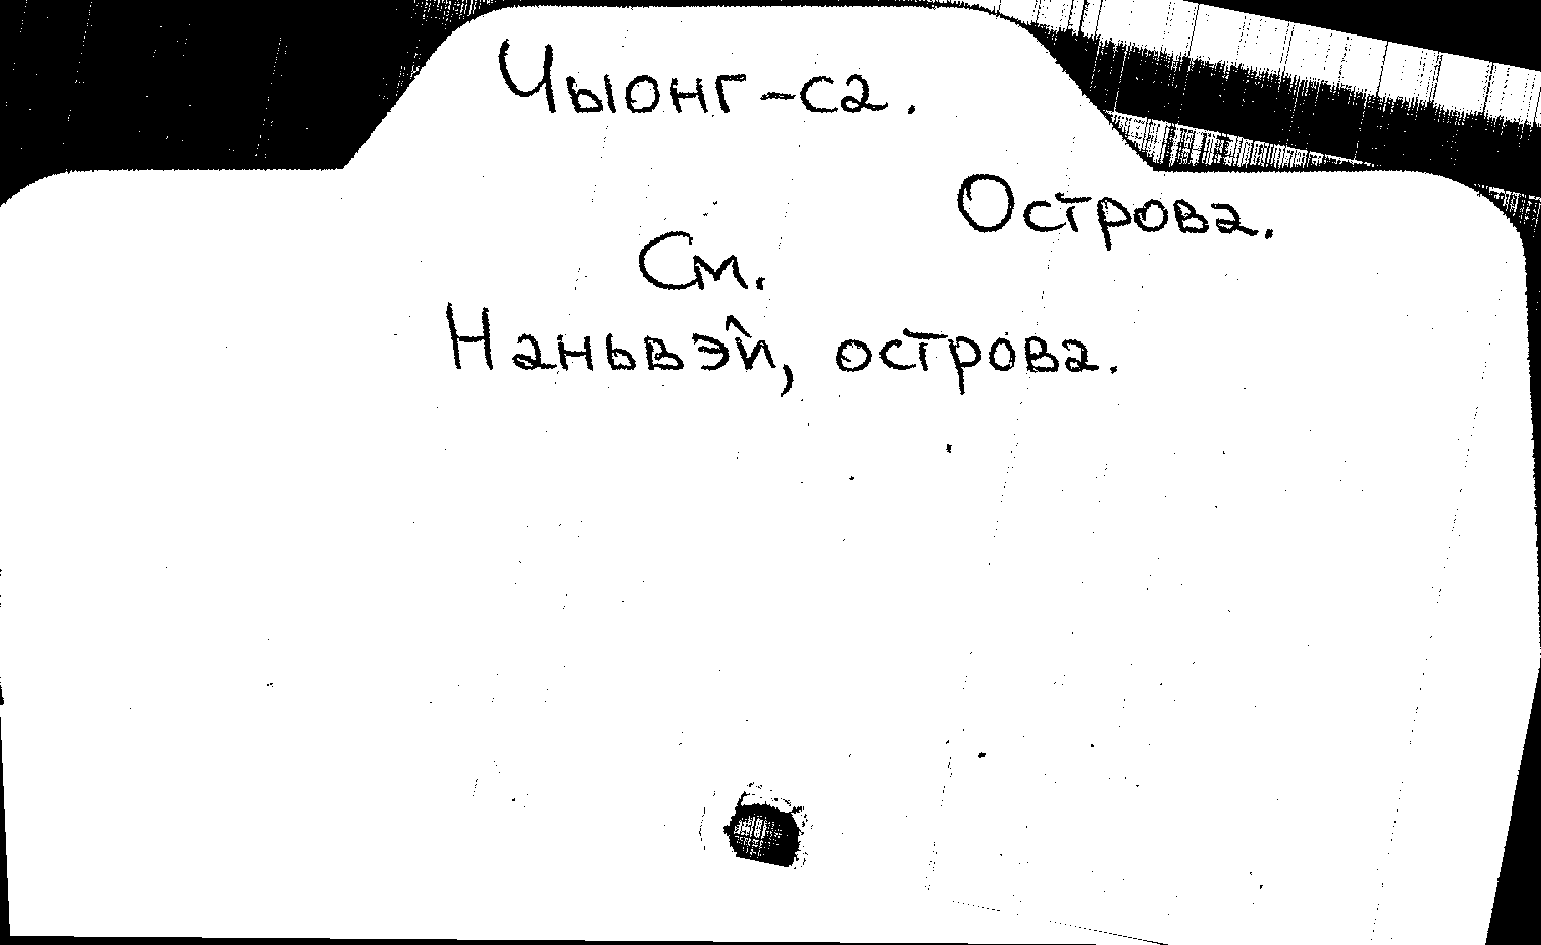 Чыонг-са.
Острова.
См.
Наньвэй, острова.